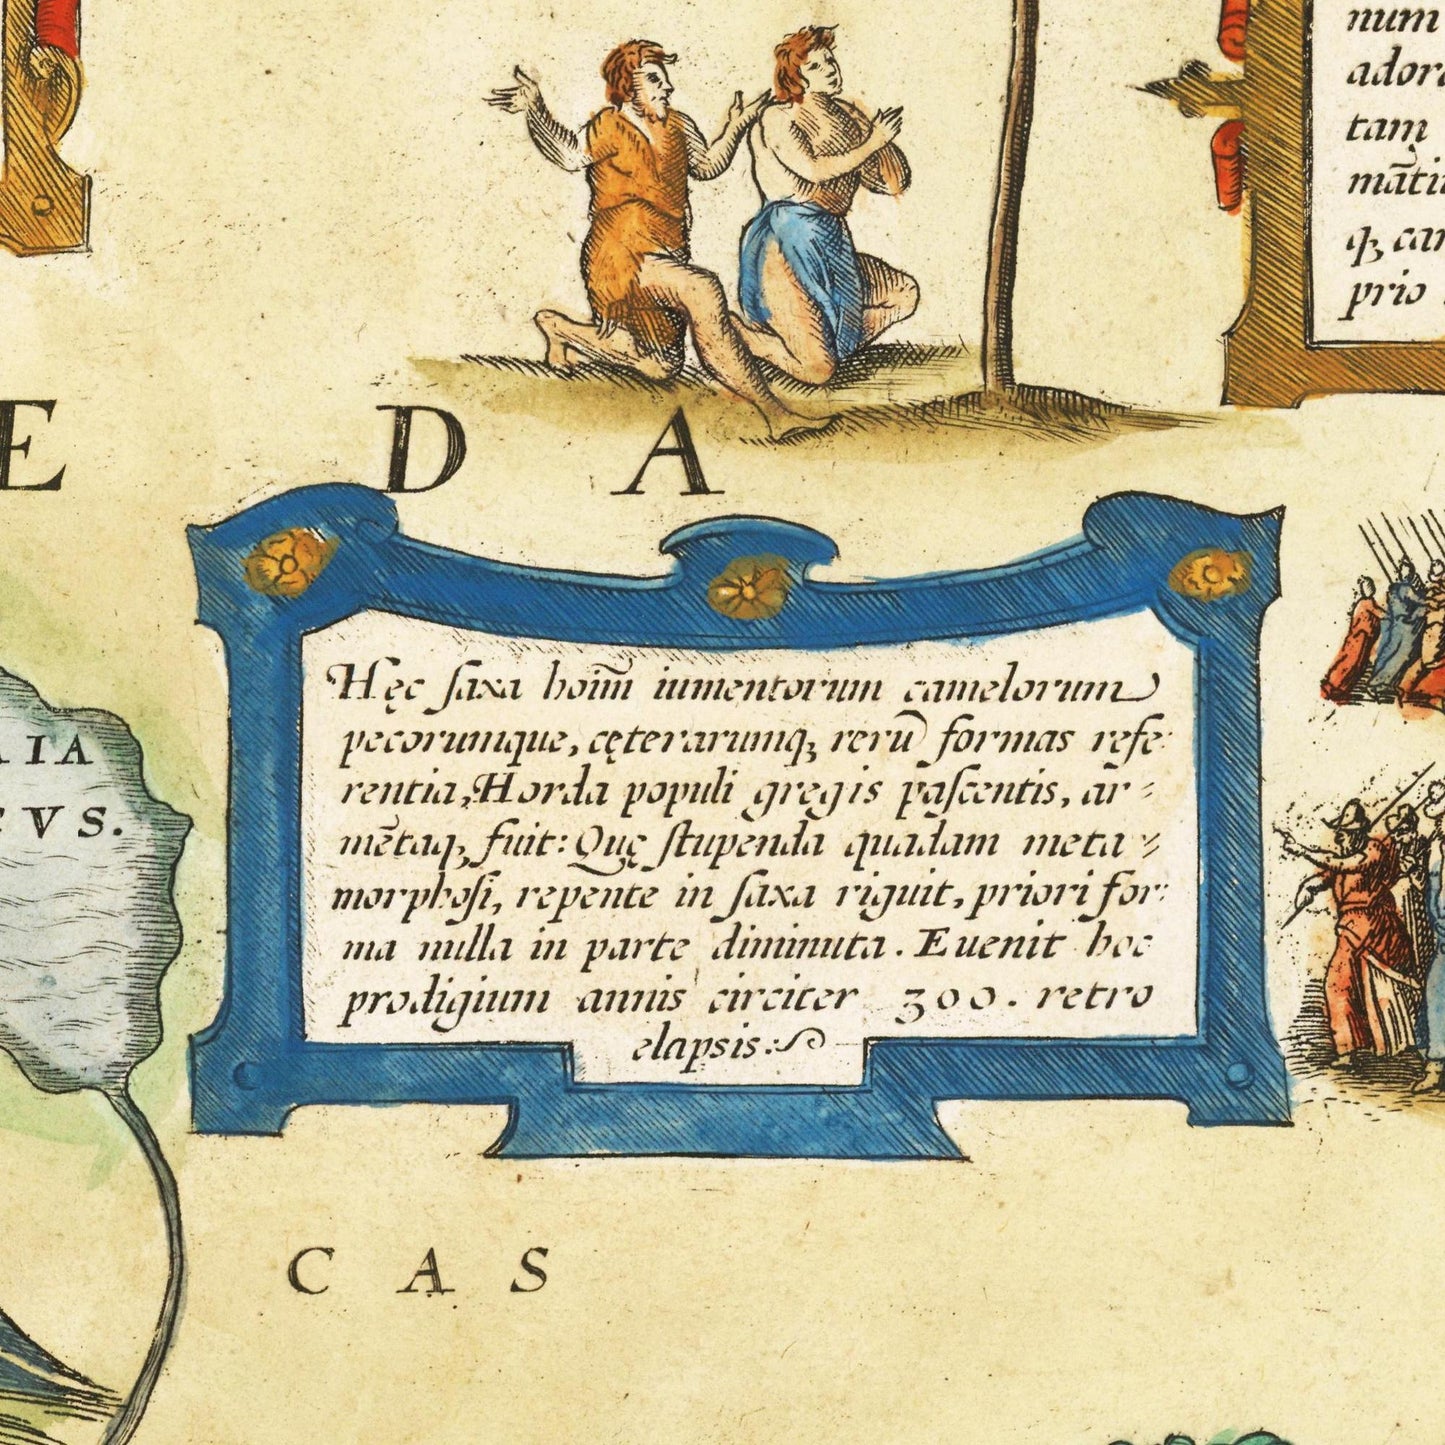 num
adora
tam
mãti
qꝫ car
prio
E D A
Hęc saxa hoim̃ iumentorum camelorum
pecorumque, cęterarumqꝫ rerũ formas refe:
rentia, Horda populi gregis pascentis, ar=
mẽtaqꝫ fuit: Quę stupenda quadam meta=
morphosi, repente in saxa riguit, priori for:
ma nulla in parte diminuta. Euenit hoc
prodigium annis circiter 300. retro
elapsis:
AIA
CVS.
C A S